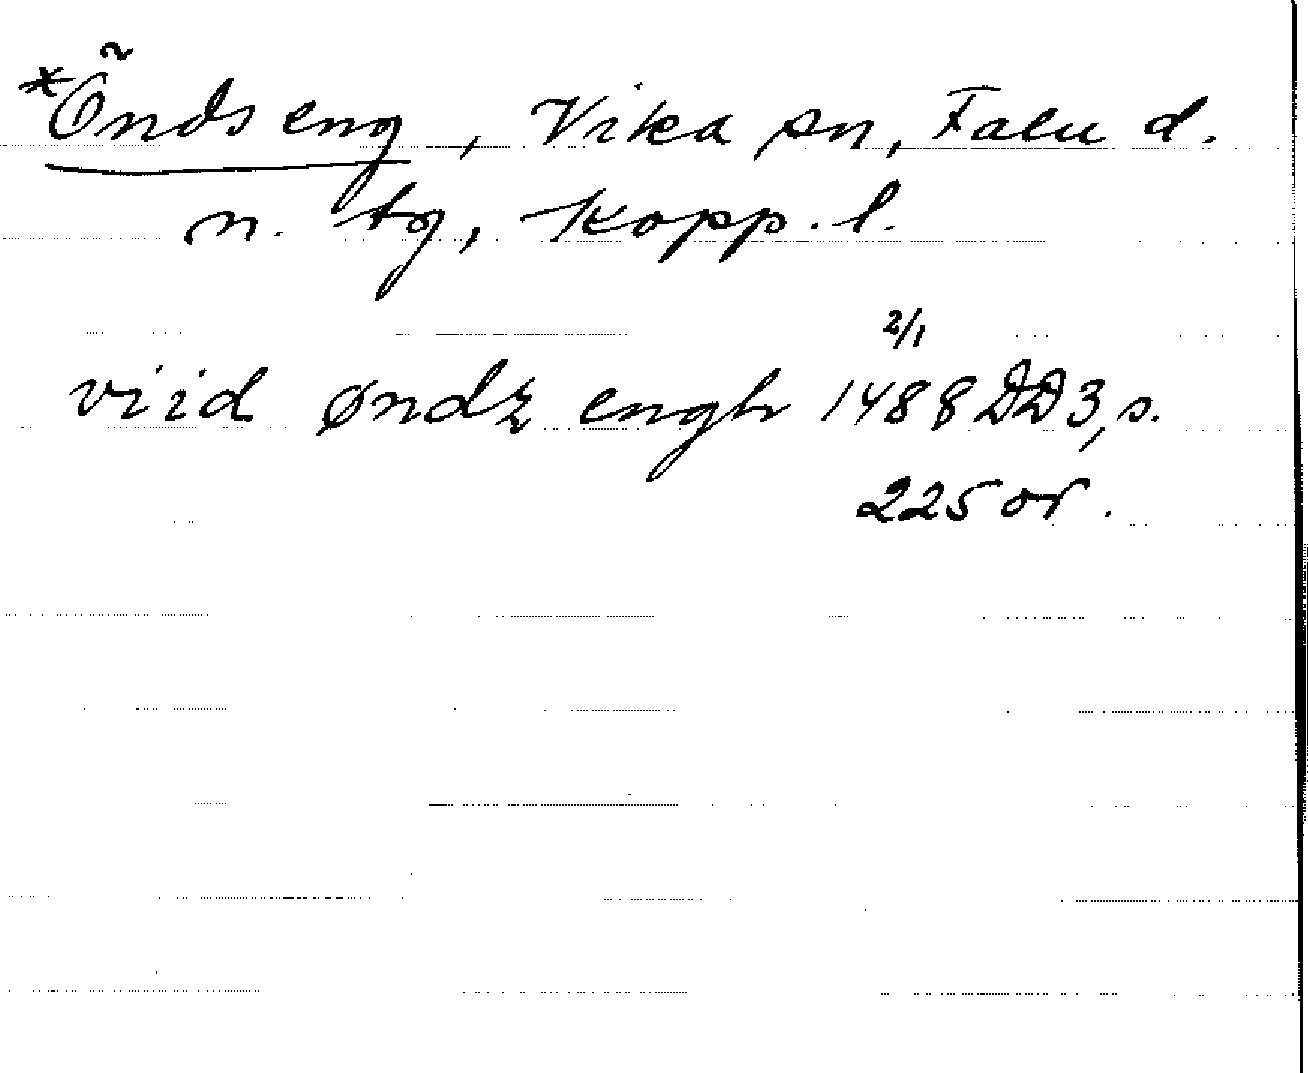 *Öndseng, Vika sn, Falu d.
n. tg, Kopp. l.
viid øndz engh 2/1 1488 DD3, s.
225 or.